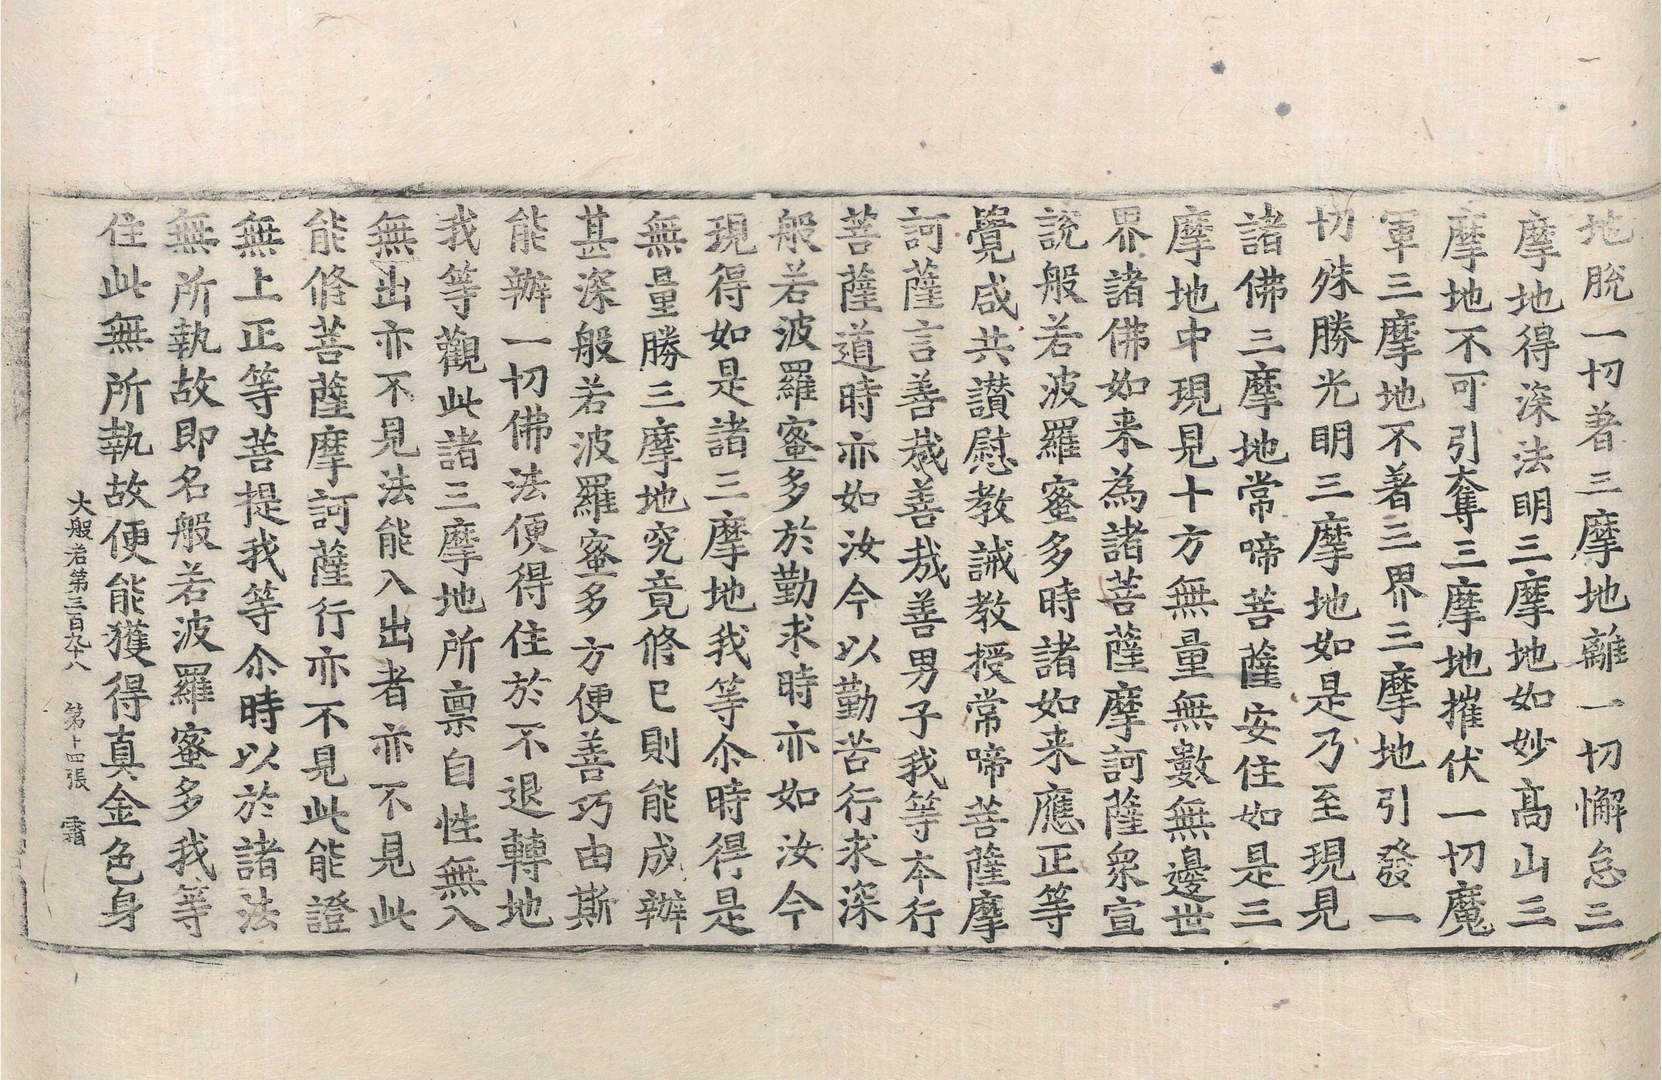 地脫一切著三摩地離一切懈怠三
摩地得深法明三摩地如妙高山三
摩地不可引奪三摩地摧伏一切魔
軍三摩地不著三界三摩地引發一
切殊勝光明三摩地如是乃至現見
諸佛三摩地常啼菩薩安住如是三
摩地中現見十方無量無數無邊世
界諸佛如来為諸菩薩摩訶薩衆宣
說般若波羅蜜多時諸如来應正等
覺咸共讃慰教誡教授常啼菩薩摩
訶薩言善哉善哉善男子我等本行
菩薩道時亦如汝今以勤苦行求深
般若波羅蜜多於勤求時亦如汝今
現得如是諸三摩地我等尒時得是
無量勝三摩地究竟修已則能成辦
甚深般若波羅蜜多方便善巧由斯
能辦一切佛法便得住於不退轉地
我等觀此諸三摩地所稟自性無入
無出亦不見法能入出者亦不見此
能修菩薩摩訶薩行亦不見此能證
無上正等菩提我等尒時以於諸法
無所執故即名般若波羅蜜多我等
住此無所執故便能獲得真金色身
大般若第三百九十八 第十四張 霜